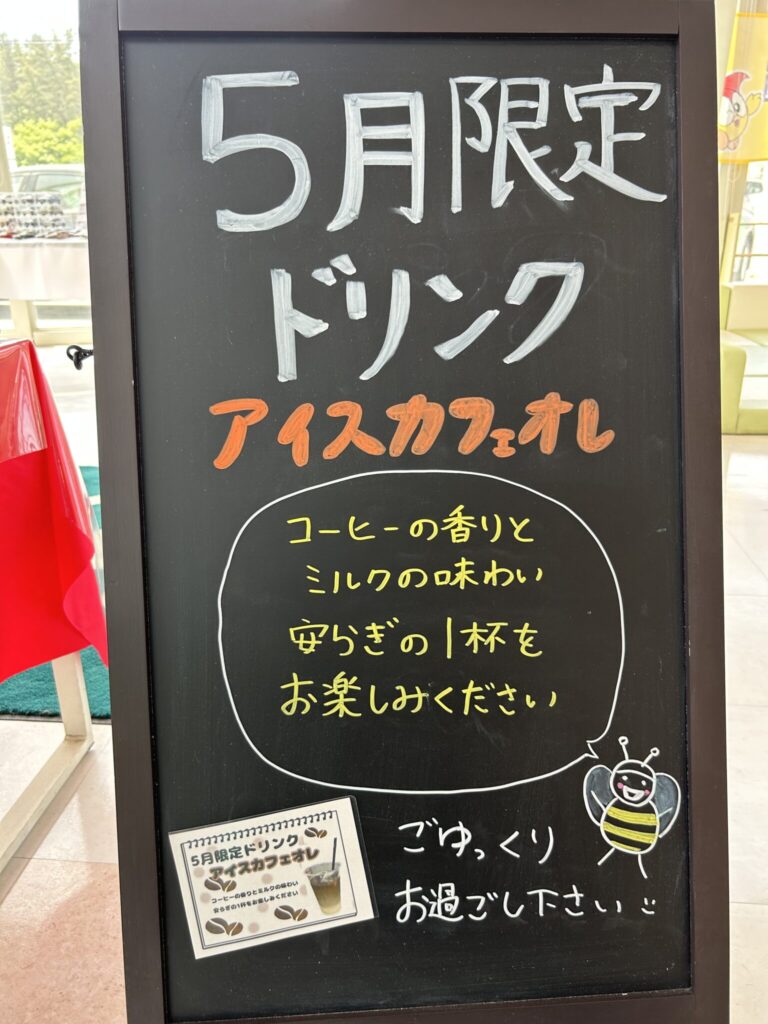 5月限定
ドリンク
アイスカフェオレ
コーヒーの香りと
ミルクの味わい
安らぎの1杯を
お楽しみください
ごゆっくり
お過ごし下さい
5月限定ドリンク
アイスカフェオレ
コーヒーの香りとミルクの味わい
安らぎの1杯をお楽しみください